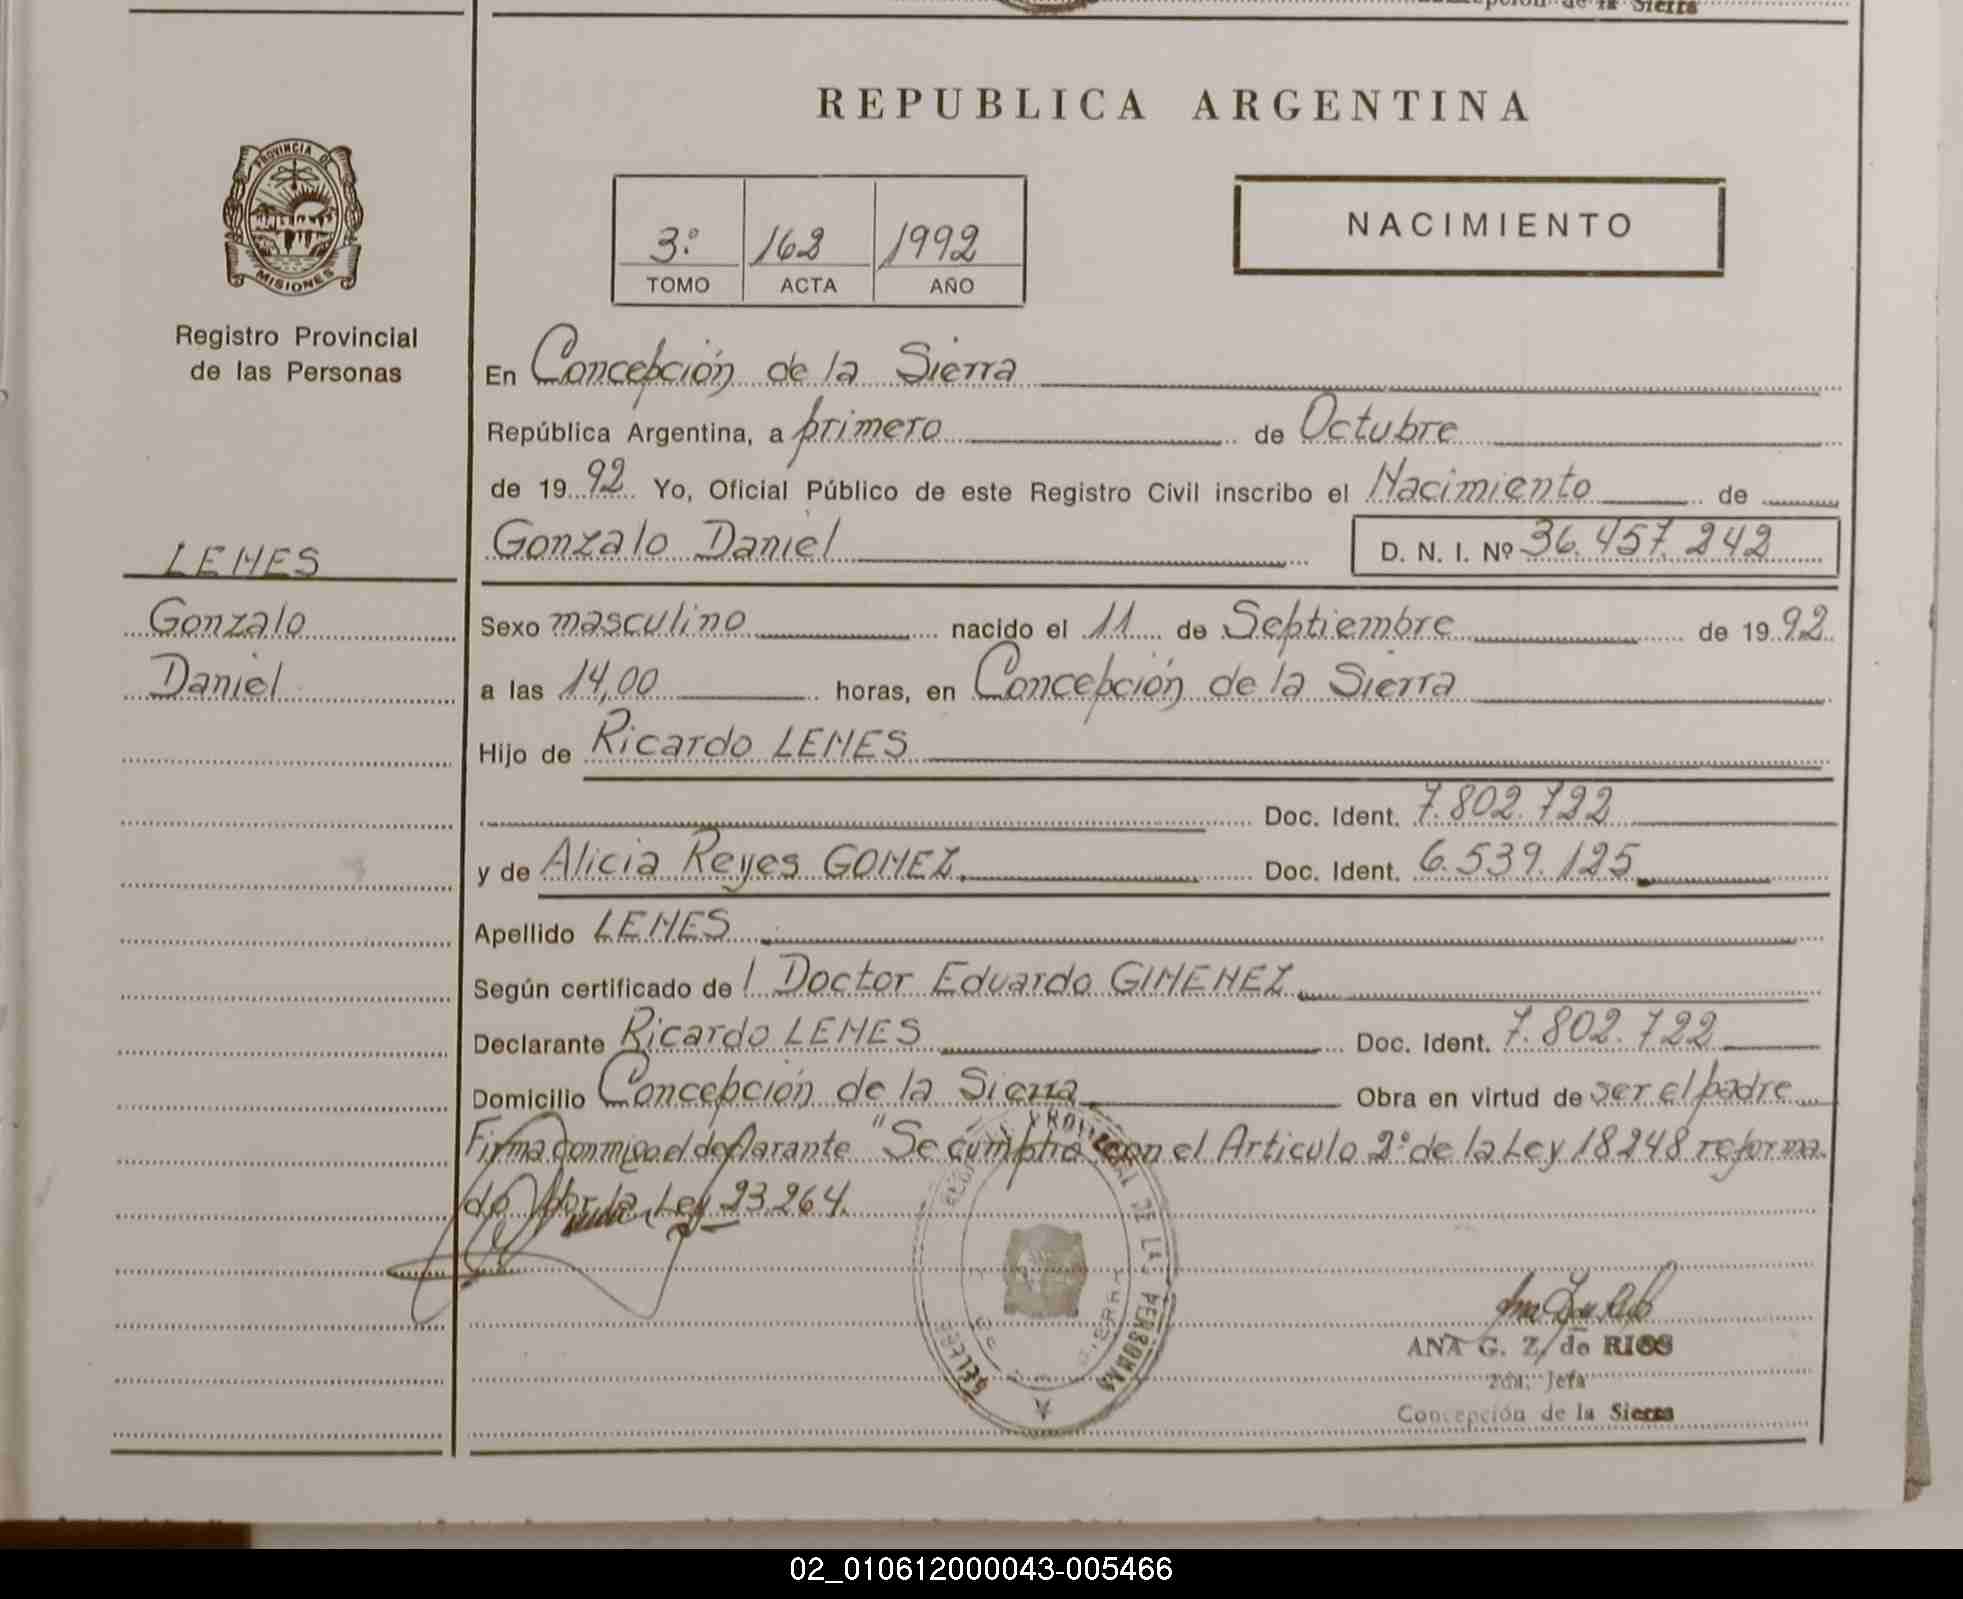 Concepción de la Sierra
REPUBLICA ARGENTINA
PROVINCIA DE
MISIONES
Registro Provincial
de las Personas
3º 162 1992
TOMO ACTA AÑO
NACIMIENTO
En Concepción de la Sierra
República Argentina, a primero de Octubre
de 1992 Yo, Oficial Público de este Registro Civil inscribo el Nacimiento de
Gonzalo Daniel D. N. I. Nº 36.457.242
LEMES
Gonzalo
Daniel
Sexo masculino nacido el 11 de Septiembre de 1992
a las 14,00 horas, en Concepción de la Sierra
Hijo de Ricardo LEMES
Doc. Ident. 7.802.722
y de Alicia Reyes GOMEZ. Doc. Ident. 6.539.125
Apellido LEMES
Según certificado de l Doctor Eduardo GIMENEZ
Declarante Ricardo LEMES Doc. Ident. 7.802.722
Domicilio Concepción de la Sierra Obra en virtud de ser el padre
Firma conmigo el declarante "Se cumplió con el Articulo 2º de la Ley 18248 reforma
do por la Ley 23.264.
PROVINCIAL DE LAS PERSONAS
SIERRA
ANA G. Z. de RIOS
2da. Jefa
Concepción de la Sierra
02_010612000043-005466